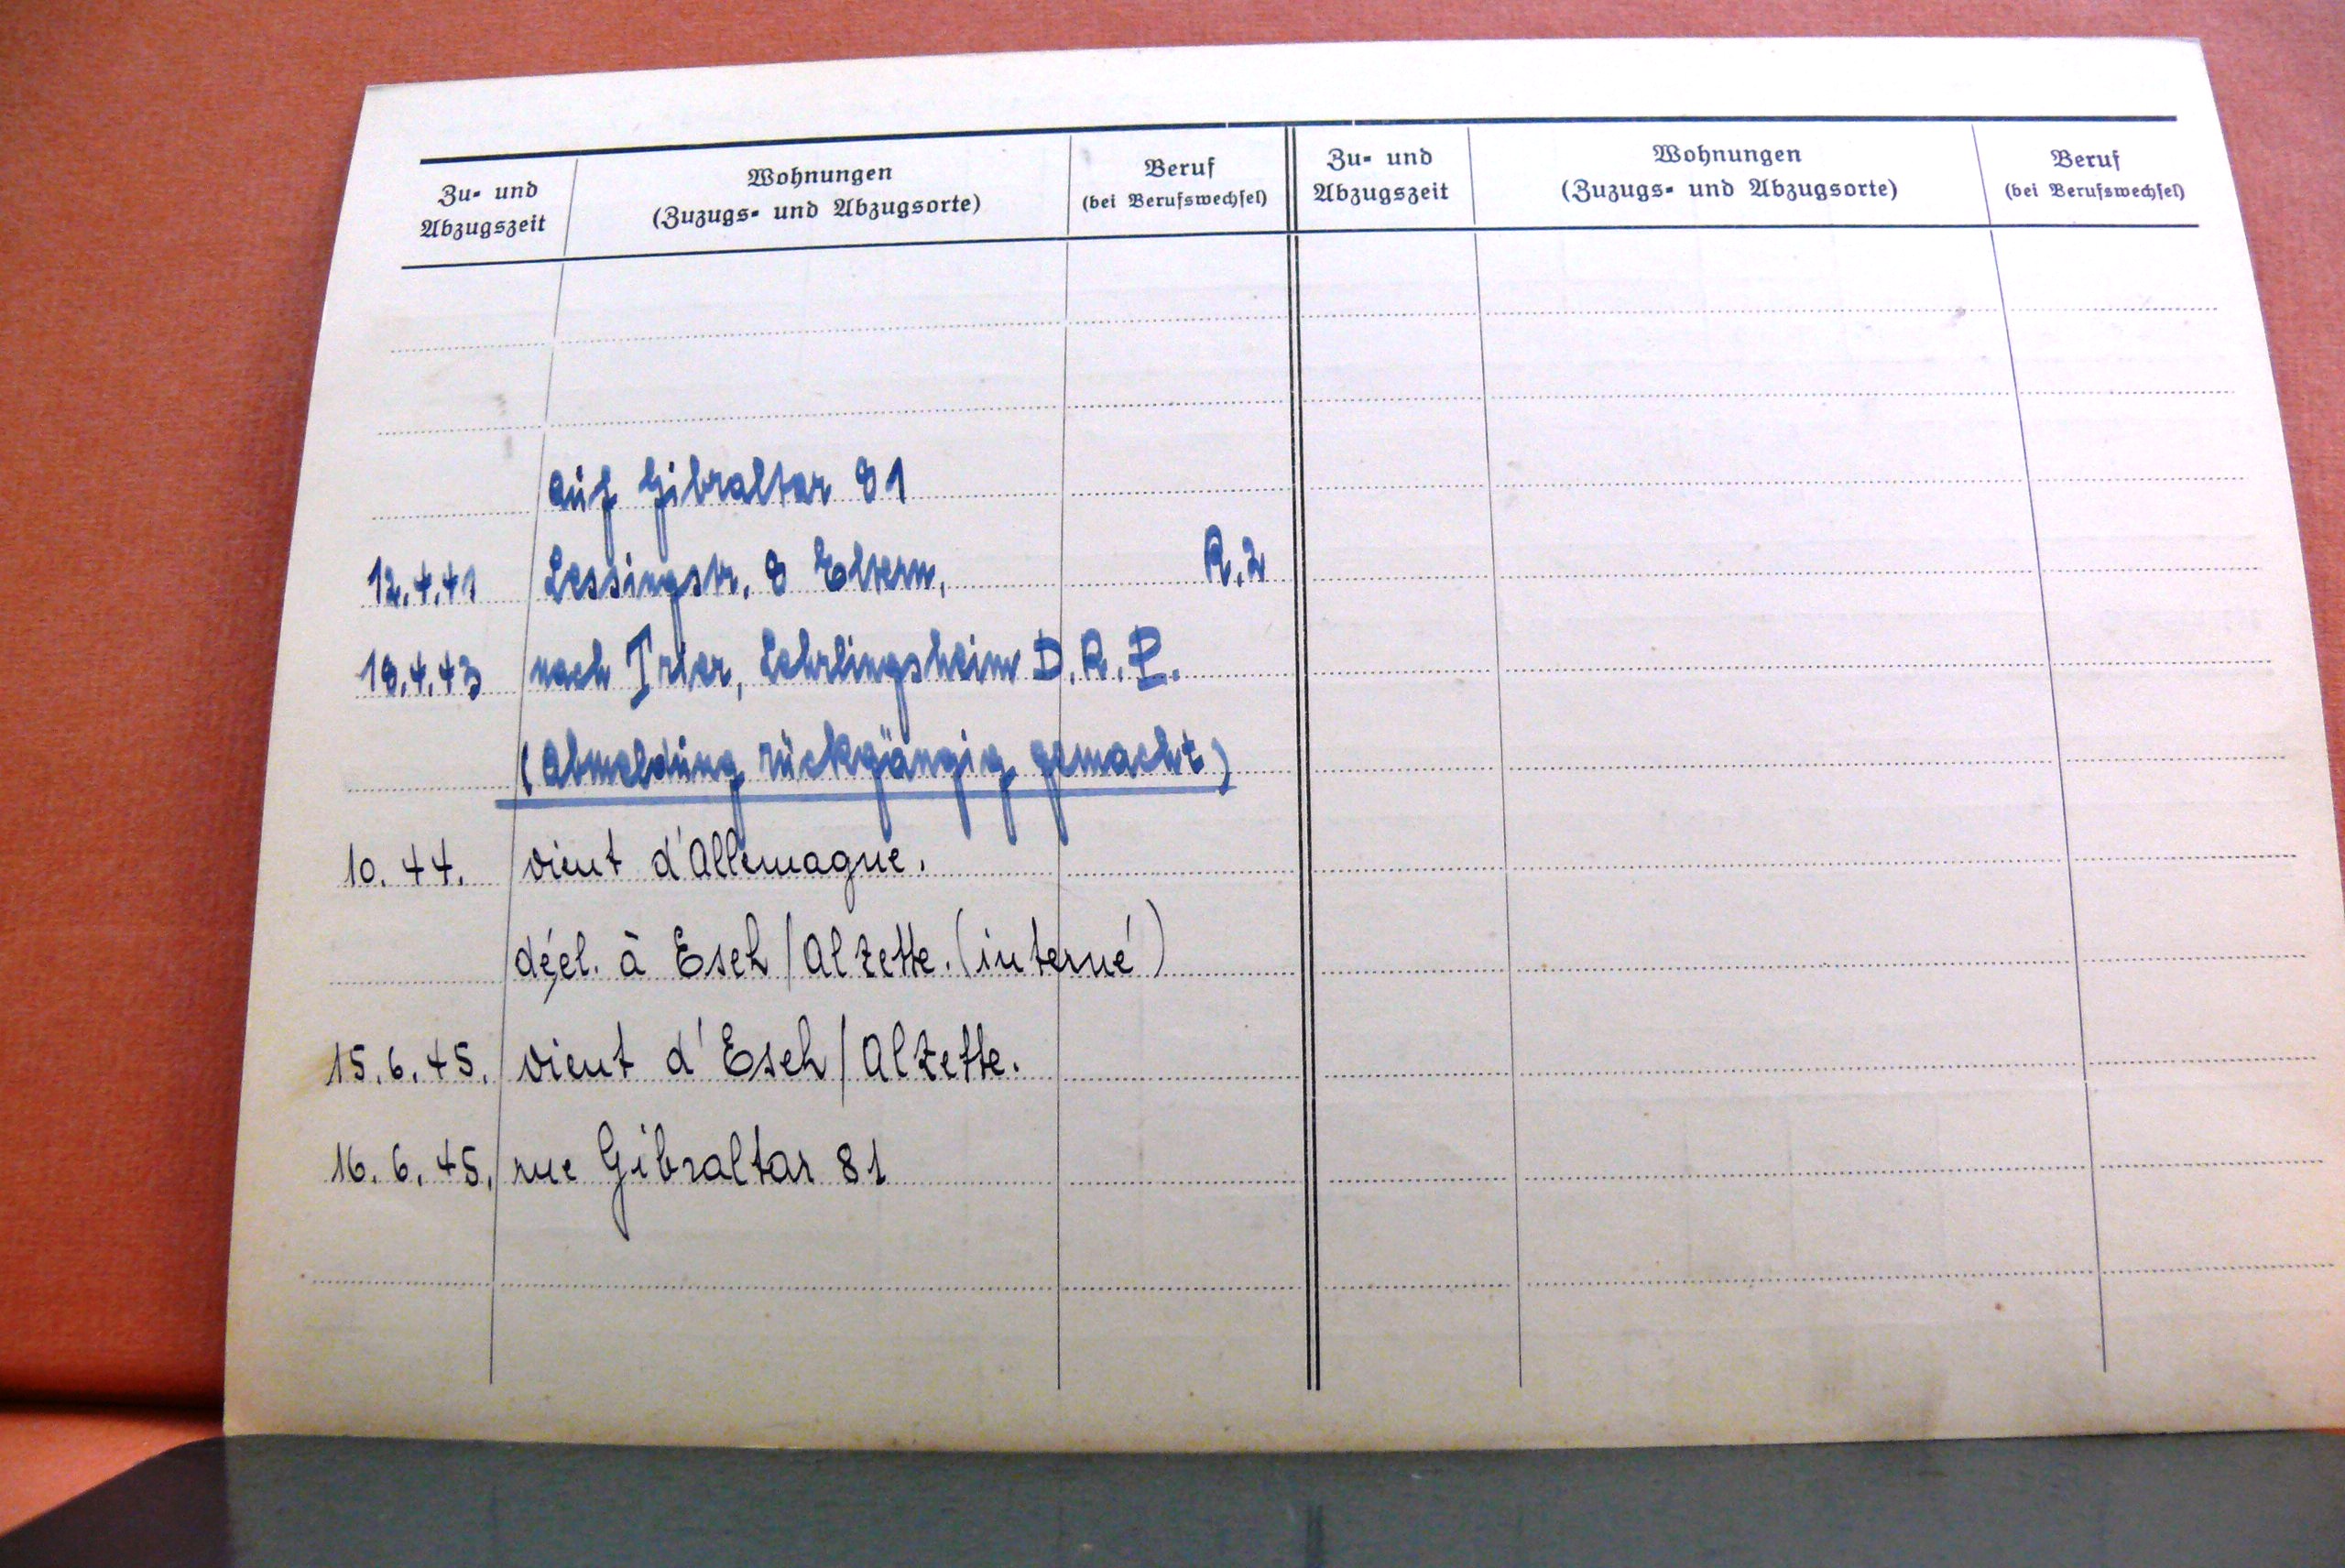 Zu- und Abzugszeit
Wohnungen (Zuzugs- und Abzugsorte)
Beruf (bei Berufswechsel)
Zu- und Abzugszeit
Wohnungen (Zuzugs- und Abzugsorte)
Beruf (bei Berufswechsel)
auf Gibraltar 81
12.4.41 Lessingstr. 8 Eltern, R.2
18.4.43 nach Trier, Lehrlingsheim D.R.P.
(Abmeldung rückgängig gemacht)
10.44. vient d'Allemagne.
décl. à Esch/Alzette. (interné)
15.6.45. vient d'Esch/Alzette.
16.6.45. rue Gibraltar 81